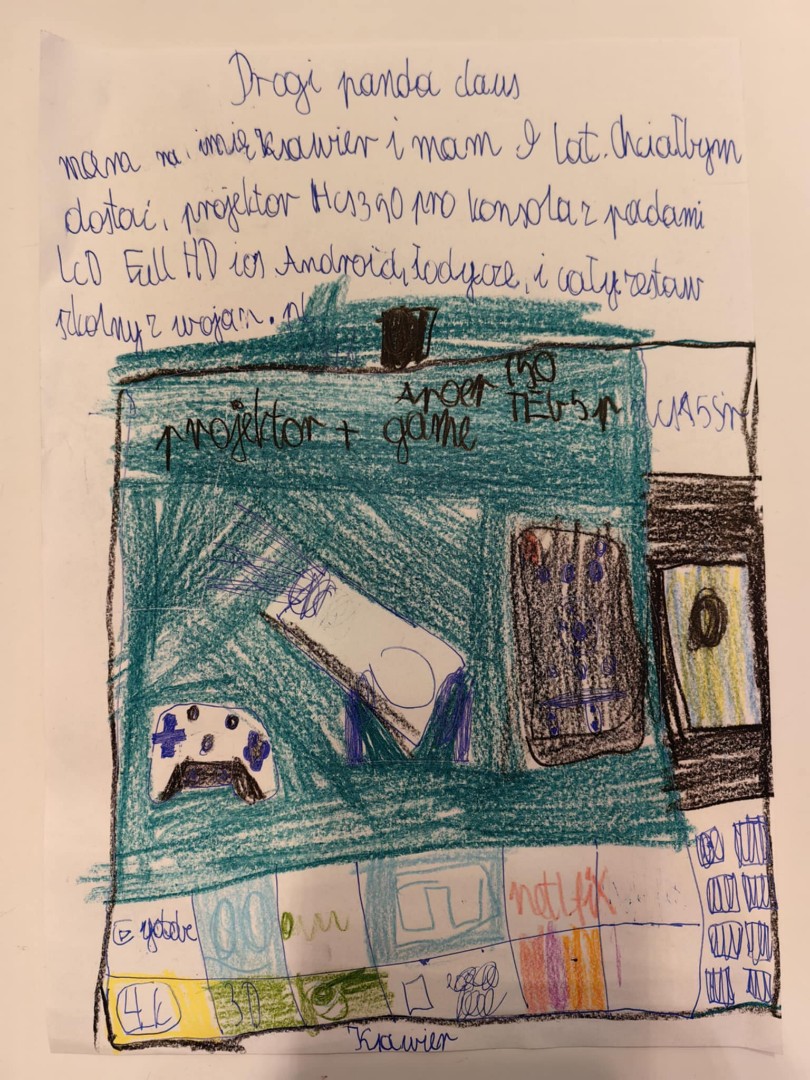 Drogi panda claus
mam na imię Ksawier i mam 9 lat. Chciałbym
dostać, projektor Hcs390 pro konsola z padami
LCD Full HD ios Android, łodycze, i cały zestaw
szkolny z wojan.pl
projektor + game
4k 3D
netlfix
Ksawier